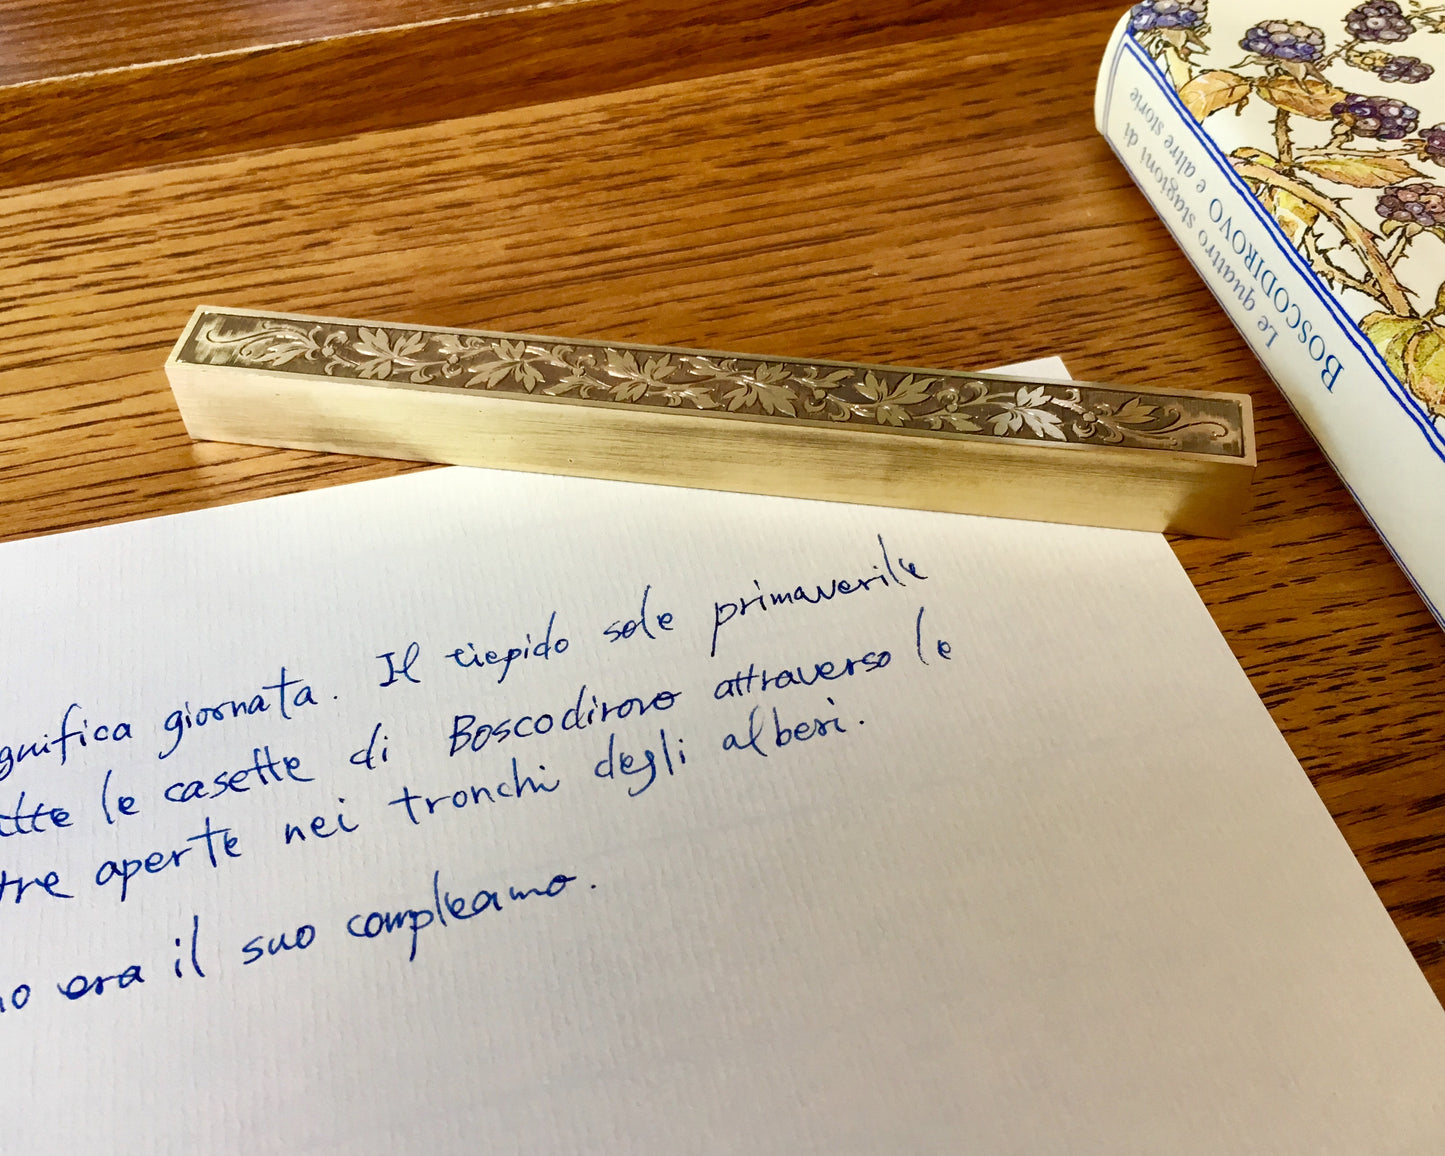 Le quattro stagioni di
BOSCODIROVO e altre storie
gnifica giornata. Il tiepido sole primaverile
tte le casette di Boscodirovo attraverso le
tre aperte nei tronchi degli alberi.
no era il suo compleamo.